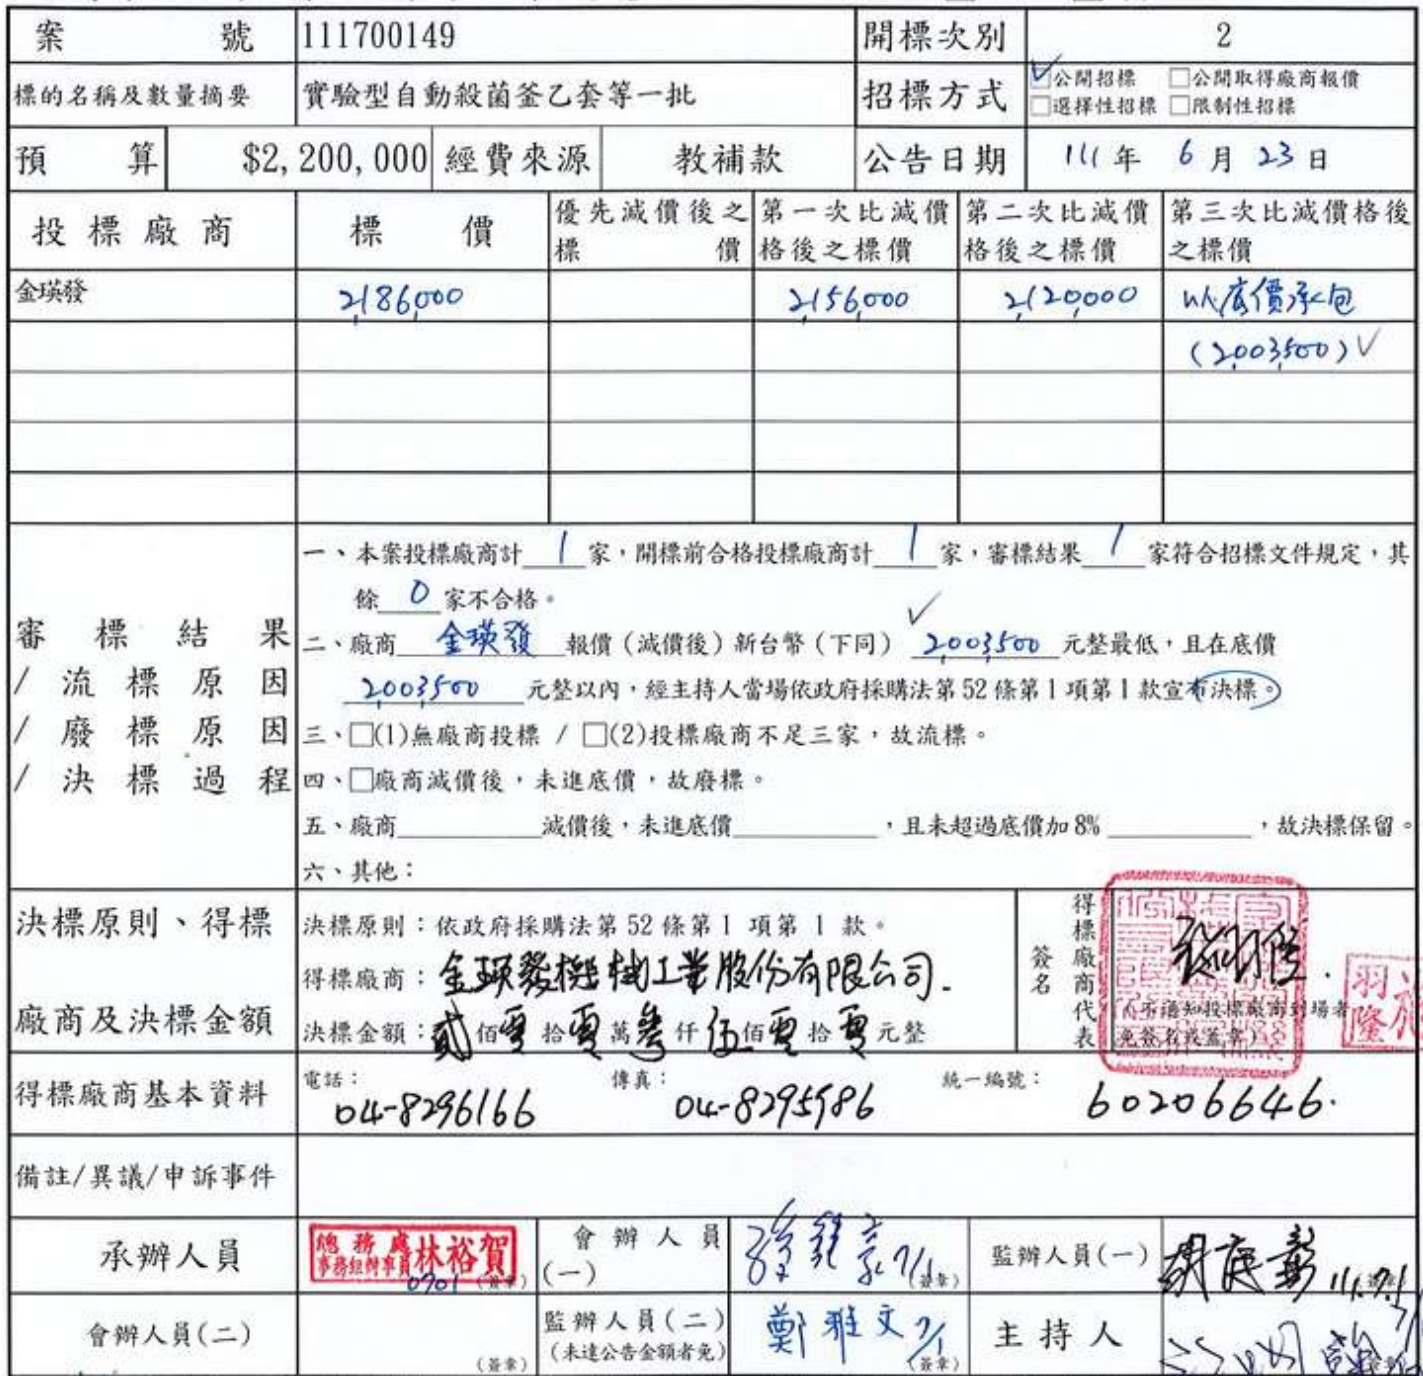 案號 111700149 開標次別 2
標的名稱及數量摘要 實驗型自動殺菌釜乙套等一批 招標方式 ☑公開招標 □公開取得廠商報價
□選擇性招標 □限制性招標
預算 $2,200,000 經費來源 教補款 公告日期 111年 6月23日
投標廠商 標價 優先減價後之標價 第一次比減價格後之標價 第二次比減價格後之標價 第三次比減價格後之標價
金瑛發 2,186,000 2,156,000 2,120,000 以底價承包
(2,003,500)✓
審標結果
/流標原因
/廢標原因
/決標過程
一、本案投標廠商計1家,開標前合格投標廠商計1家,審標結果1家符合招標文件規定,其
餘0家不合格。
二、廠商 金瑛發 報價(減價後)新台幣(下同) 2,003,500 元整最低,且在底價
2,003,500 元整以內,經主持人當場依政府採購法第52條第1項第1款宣布決標。
三、□(1)無廠商投標 / □(2)投標廠商不足三家,故流標。
四、□廠商減價後,未進底價,故廢標。
五、廠商__________減價後,未進底價__________,且未超過底價加8% __________,故決標保留。
六、其他:
決標原則、得標
廠商及決標金額
決標原則:依政府採購法第52條第1項第1款。
得標廠商:金瑛發機械工業股份有限公司.
決標金額:貳佰零拾零萬參仟伍佰零拾零元整
得標廠商代表
簽名
(人不通知投標廠商到場者
免簽名或蓋章)
羽隆
得標廠商基本資料 電話: 傳真: 統一編號:
04-8296166 04-8295986 60206646.
備註/異議/申訴事件
承辦人員 總務處 事務組辦事員 林裕賀 0701 (簽章) 會辦人員(一) 7/1 (簽章) 監辦人員(一) 111.7.1
會辦人員(二) (簽章) 監辦人員(二) (未達公告金額者免) 鄭雅文 7/1 (簽章) 主持人